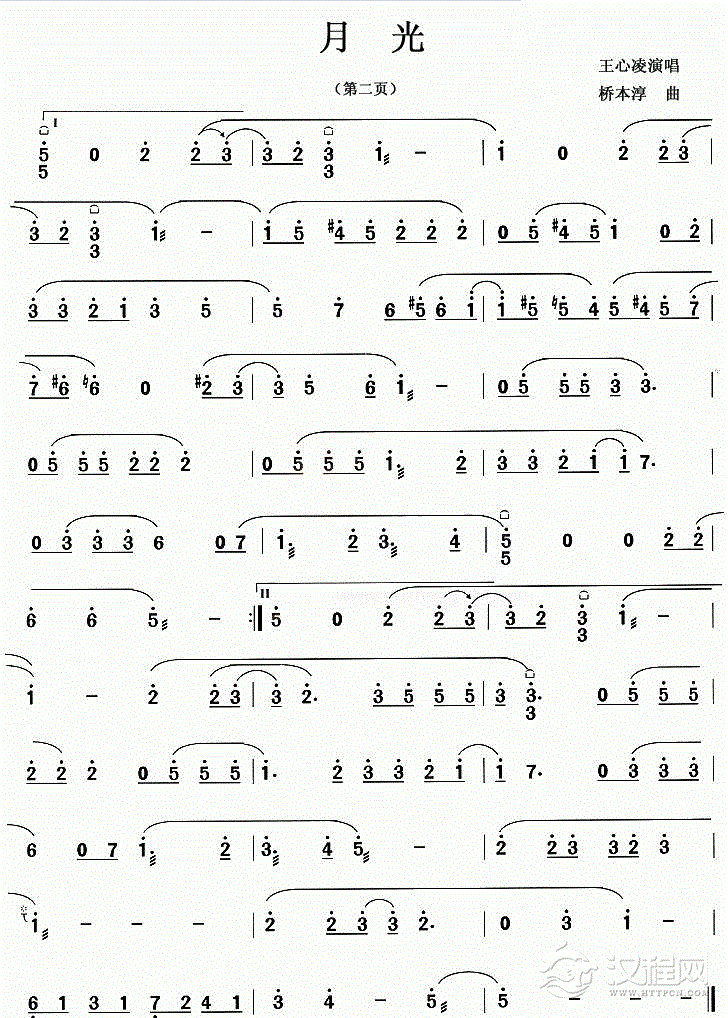 月 光
（第二页）
王心凌演唱
桥本淳 曲
I
5 0 2 2 3 | 3 2 3 1 – | 1 0 2 2 3
5 3
3 2 3 1 – | 1 5 #4 5 2 2 2 | 0 5 #4 5 1 0 2
3
3 3 2 1 3 5 | 5 7 6 #5 6 1 | 1 #5 ♮5 4 5 #4 5 7 |
7 #6 ♮6 0 #2 3 | 3 5 6 1 – | 0 5 5 5 3 3. |
0 5 5 5 2 2 2 | 0 5 5 5 1. 2 | 3 3 2 1 1 7. |
0 3 3 3 6 0 7 | 1. 2 3. 4 | 5 0 0 2 2 |
5
II
6 6 5 – :|| 5 0 2 2 3 | 3 2 3 1 –
3
1 – 2 2 3 | 3 2. 3 5 5 5 | 3 3. 0 5 5 5
3
2 2 2 0 5 5 5 | 1. 2 3 3 2 1 | 1 7. 0 3 3 3
6 0 7 1. 2 | 3. 4 5 – | 2 2 3 3 2 3
1 – – – | 2 2 3 3 2. | 0 3 1 –
6 1 3 1 7 2 4 1 | 3 4 – 5 | 5 – – – ||
汉程网
WWW.HTTPCN.COM